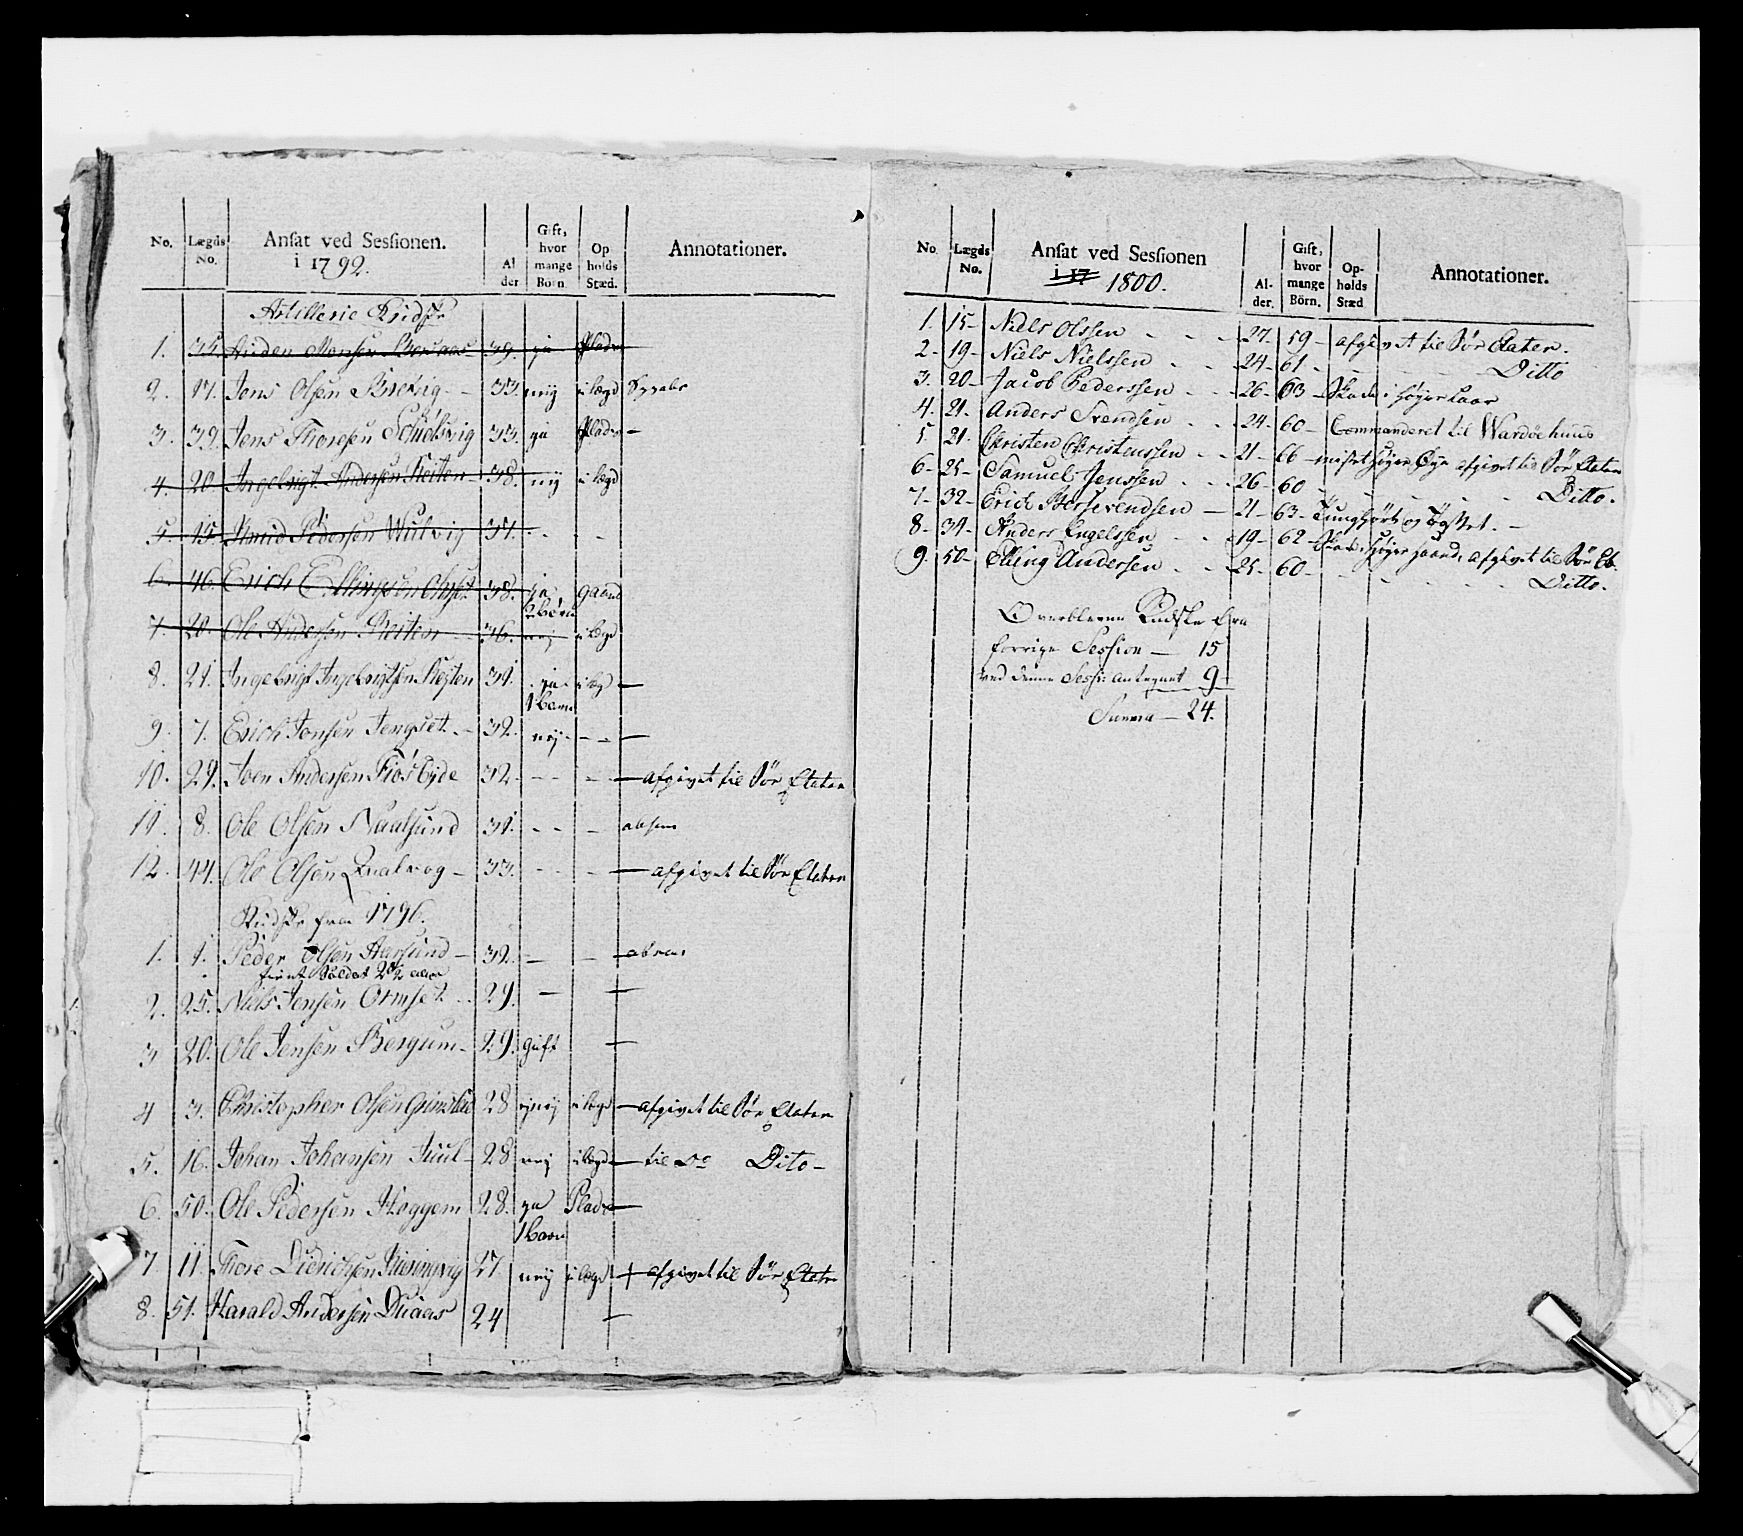 No. Lægds No. Ansat ved Sessionen. i 1792. Alder Gift, hvor mange Börn Opholds Stæd. Annotationer.
Artillerie Kudske
1. 35. Anders Monsen 39. ja Pladz
2. 17. Jens Olsen 33. nej i lægd
3. 39. Jens Thoresen 33. ja Pladz
4. 20. Ingebrigt Andersen Reiten 38. nej i lægd
5. 15. Knud Pedersen Wulvig 37. - -
6. 46. Erich Ellingsen 38. ja 2 børn gaard
7. 20. Ole Andersen Reiten 36. nej i lægd
8. 21. Ingebrigt Ingebrigtsen Reiten 31. ja 1 barn i lægd —
9. 7. Erich Jonsen 32. nej - - —
10. 29. Joen Andersen 32 - - - — afgivet til Søe Etaten
11. 8. Ole Olsen Naalsund 31. - - -
12. 44. Ole Olsen Qualvog - 33. - - - — afgivet til Søe Etaten
Kudske fra 1796.
1. 1. Peder Olsen Aarsund - 32. - -
tient Soldat 2 1/2 aar
2. 25. Niels Jensen Ormset 29. — —
3 20. Ole Jensen Bergum - 29. gift —
4 3. Christopher Olsen 28 nej i lægd — afgivet til Søe Etaten
5. 16. Johan Johansen Juul - 28 nej i lægd — til Do Dito -
6. 50. Ole Pedersen Hoggem 28. ja 1 barn Pladz —
7. 11. Thore Didrichsen 27. nej i lægd + afgivet til Søe Etaten
8. 51. Harald Andersen 24 —
No. Lægds No. Ansat ved Sessionen i 17 1800. Alder. Gift, hvor mange Börn. Opholds Stæd Annotationer.
1. 15- Niels Olssen - - - 27. 59 - afgivet til Søe Etaten.
2- 19- Niels Nielssen - - 24- 61 - - - - Ditto
3. 20- Jacob Pederssen - - 26- 63 - Skade i højre Laar
4. 21. Anders Svendsen - - 24- 60 - Commanderet til Wardøehuus
5. 21. Christen Christenssen - - 21- 66 - mistet højre Øye afgivet til Søe Etaten
6- 25- Samuel Jenssen - - 26- 60 - - - - Ditto.
7- 32- Erich - 21- 63- Tunghørt og
8- 34- Anders Engelssen - - 19- 62- Skade i højre Haand, afgivet til Søe Et.
9. 50- Elling Andersen - - 25- 60 - - - - Ditto.
Overblevne Kudske fra
forrige Session — 15
ved denne Sess: antegnet 9
Summa — 24.